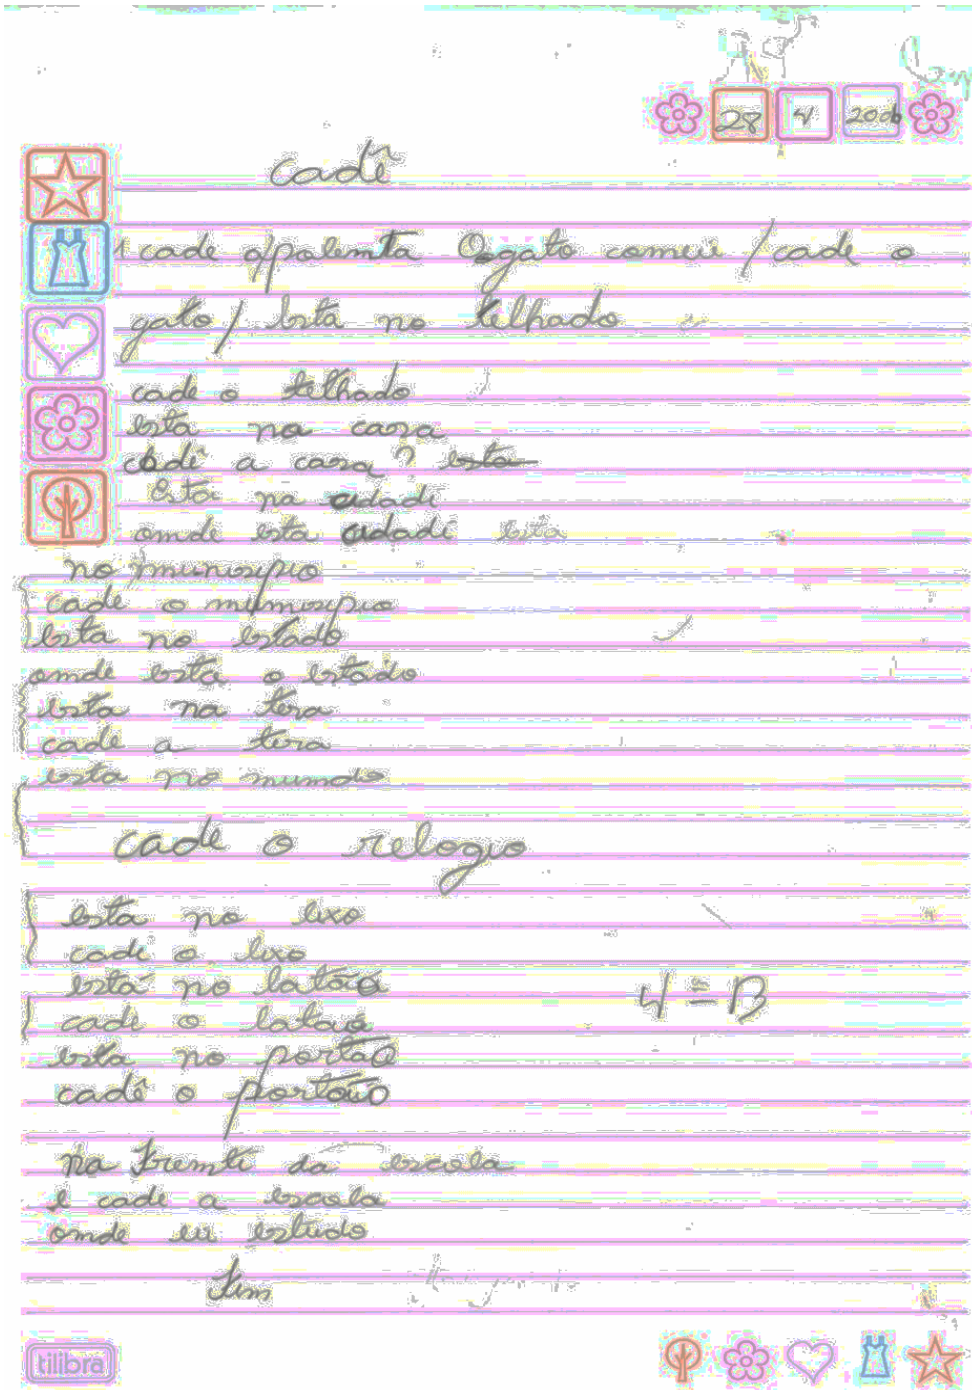 28 4 2006
Cadê
1 cade o/polenta O gato comeu / cade o
gato / Esta no telhado
cade o telhado
esta na casa
cadê a casa ? esta
Esta na cidade
omde esta cidade esta
no munisipio
cade o munisipio
Esta no estado
omde esta o estado
esta na tera
cade a tera
esta no mumdo
cade o relogio
esta no lixo
cade o lixo
esta no latão
4 = B
cade o latão
esta no portão
cadê o portão
na fremte da escola
e cade a escola
omde eu estudo
Fim
tilibra